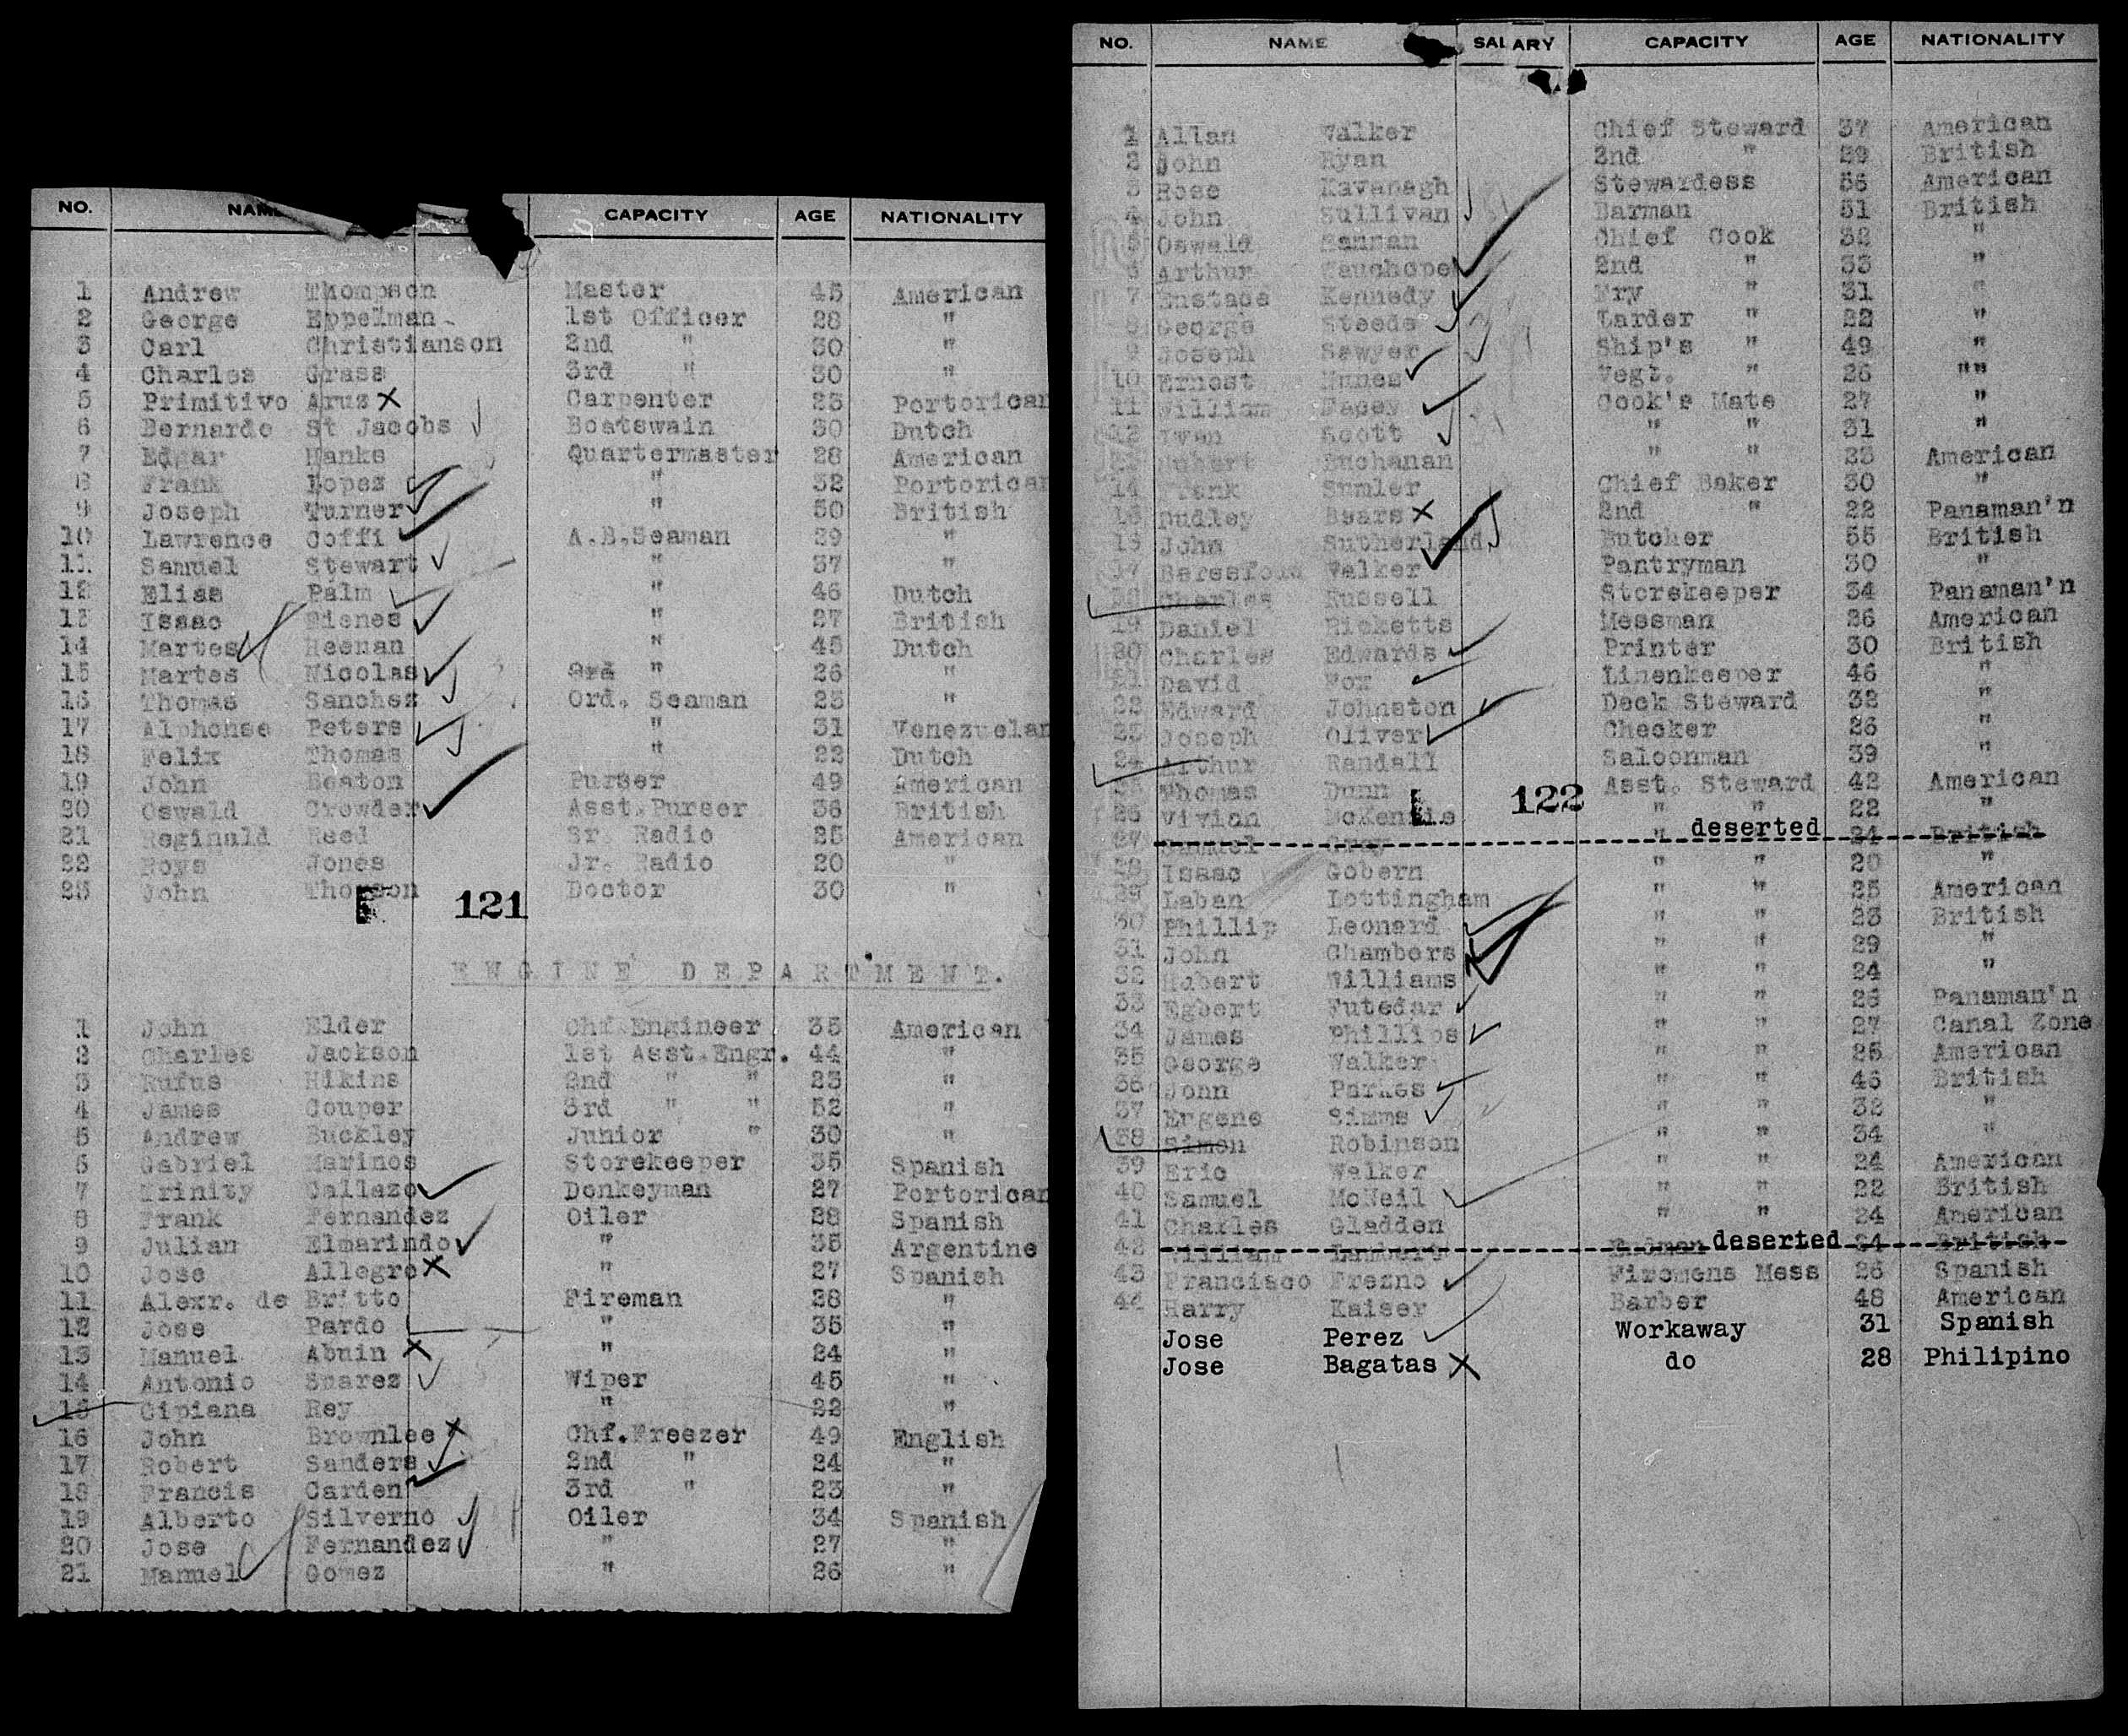 NO. NAME CAPACITY AGE NATIONALITY
1 Andrew Thompson Master 45 American
2 George Eppelman 1st Officer 28 "
3 Carl Christianson 2nd " 30 "
4 Charles Grass 3rd " 30 "
5 Primitivo Aruz Carpenter 23 Portorican
6 Bernardo St Jacobs Boatswain 30 Dutch
7 Edgar Hanks Quartermaster 28 American
8 Frank Lopez " 32 Portorican
9 Joseph Turner " 50 British
10 Lawrence Goffi A.B.Seaman 29 "
11 Samuel Stewart " 37 "
12 Elias Palm " 46 Dutch
13 Isaac " 27 British
14 Martes Heenan " 45 Dutch
15 Martes Nicolas " 26 "
16 Thomas Sanchez Ord. Seaman 23 "
17 Alphonse Peters " 31 Venezuelan
18 Felix Thomas " 22 Dutch
19 John Beaton Purser 49 American
20 Oswald Crowder Asst.Purser 36 British
21 Reginald Reed Sr. Radio 25 American
22 Roys Jones Jr. Radio 20 "
23 John Thomson Doctor 30 "
121
ENGINE DEPARTMENT.
1 John Elder Chf.Engineer 35 American
2 Charles Jackson 1st Asst.Engr. 44 "
3 Rufus Hikins 2nd " " 23 "
4 James Couper 3rd " " 52 "
5 Andrew Buckley Junior " 30 "
6 Gabriel Marinos Storekeeper 35 Spanish
7 Trinity Callazo Donkeyman 27 Portorican
8 Frank Fernandez Oiler 28 Spanish
9 Julian Elmarindo " 35 Argentine
10 Jose Allegre " 27 Spanish
11 Alexr. de Britto Fireman 28 "
12 Jose Pardo " 35 "
13 Manuel Abuin " 24 "
14 Antonio Suarez Wiper 45 "
15 Cipiana Rey " 22 "
16 John Brownlee Chf.Freezer 49 English
17 Robert Sanders 2nd " 24 "
18 Francis Carden 3rd " 23 "
19 Alberto Silverno Oiler 34 Spanish
20 Jose Fernandez " 27 "
21 Manuel Gomez " 26 "
NO. NAME SALARY CAPACITY AGE NATIONALITY
1 Allan Walker Chief Steward 37 American
2 John Ryan 2nd " 29 British
3 Rose Kavanagh Stewardess 56 American
4 John Sullivan Barman 51 British
5 Oswald Hannan Chief Cook 32 "
6 Arthur Wauchope 2nd " 33 "
7 Enstace Kennedy Fry " 31 "
8 George Steede Larder " 22 "
9 Joseph Sawyer Ship's " 49 "
10 Ernest Nunes Vegt. " 26 ""
11 William Facey Cook's Mate 27 "
12 Iwan Scott " " 31 "
13 Hubert Buchanan " " 23 American
14 Frank Sumler Chief Baker 30 "
16 Dudley Bears 2nd " 22 Panaman'n
15 John Sutherland Butcher 55 British
17 Beresford Walker Pantryman 30 "
18 Charles Russell Storekeeper 34 Panaman'n
19 Daniel Ricketts Messman 26 American
20 Charles Edwards Printer 30 British
21 David Fox Linenkeeper 46 "
22 Edward Johnston Deck Steward 32 "
23 Joseph Oliver Checker 26 "
24 Arthur Randall Saloonman 39 "
25 Thomas Dunn Asst. Steward 42 American
122
26 Vivian McKenzie " " 22 "
27 Samuel Gray " deserted 24 British
28 Isaac Gobern " " 20 "
29 Laban Lottingham " " 25 American
30 Phillip Leonard " " 23 British
31 John Chambers " " 29 "
32 Hubert Williams " " 24 "
33 Egbert Futedar " " 26 Panaman'n
34 James Phillips " " 27 Canal Zone
35 George Walker " " 25 American
36 John Parkes " " 46 British
37 Eugene Simms " " 32 "
38 Simon Robinson " " 34 "
39 Eric Walker " " 24 American
40 Samuel McNeil " " 22 British
41 Charles Gladden " " 24 American
42 William Lambert deserted 24 British
43 Francisco Frezno Firemens Mess 26 Spanish
44 Harry Kaiser Barber 48 American
Jose Perez Workaway 31 Spanish
Jose Bagatas do 28 Philipino